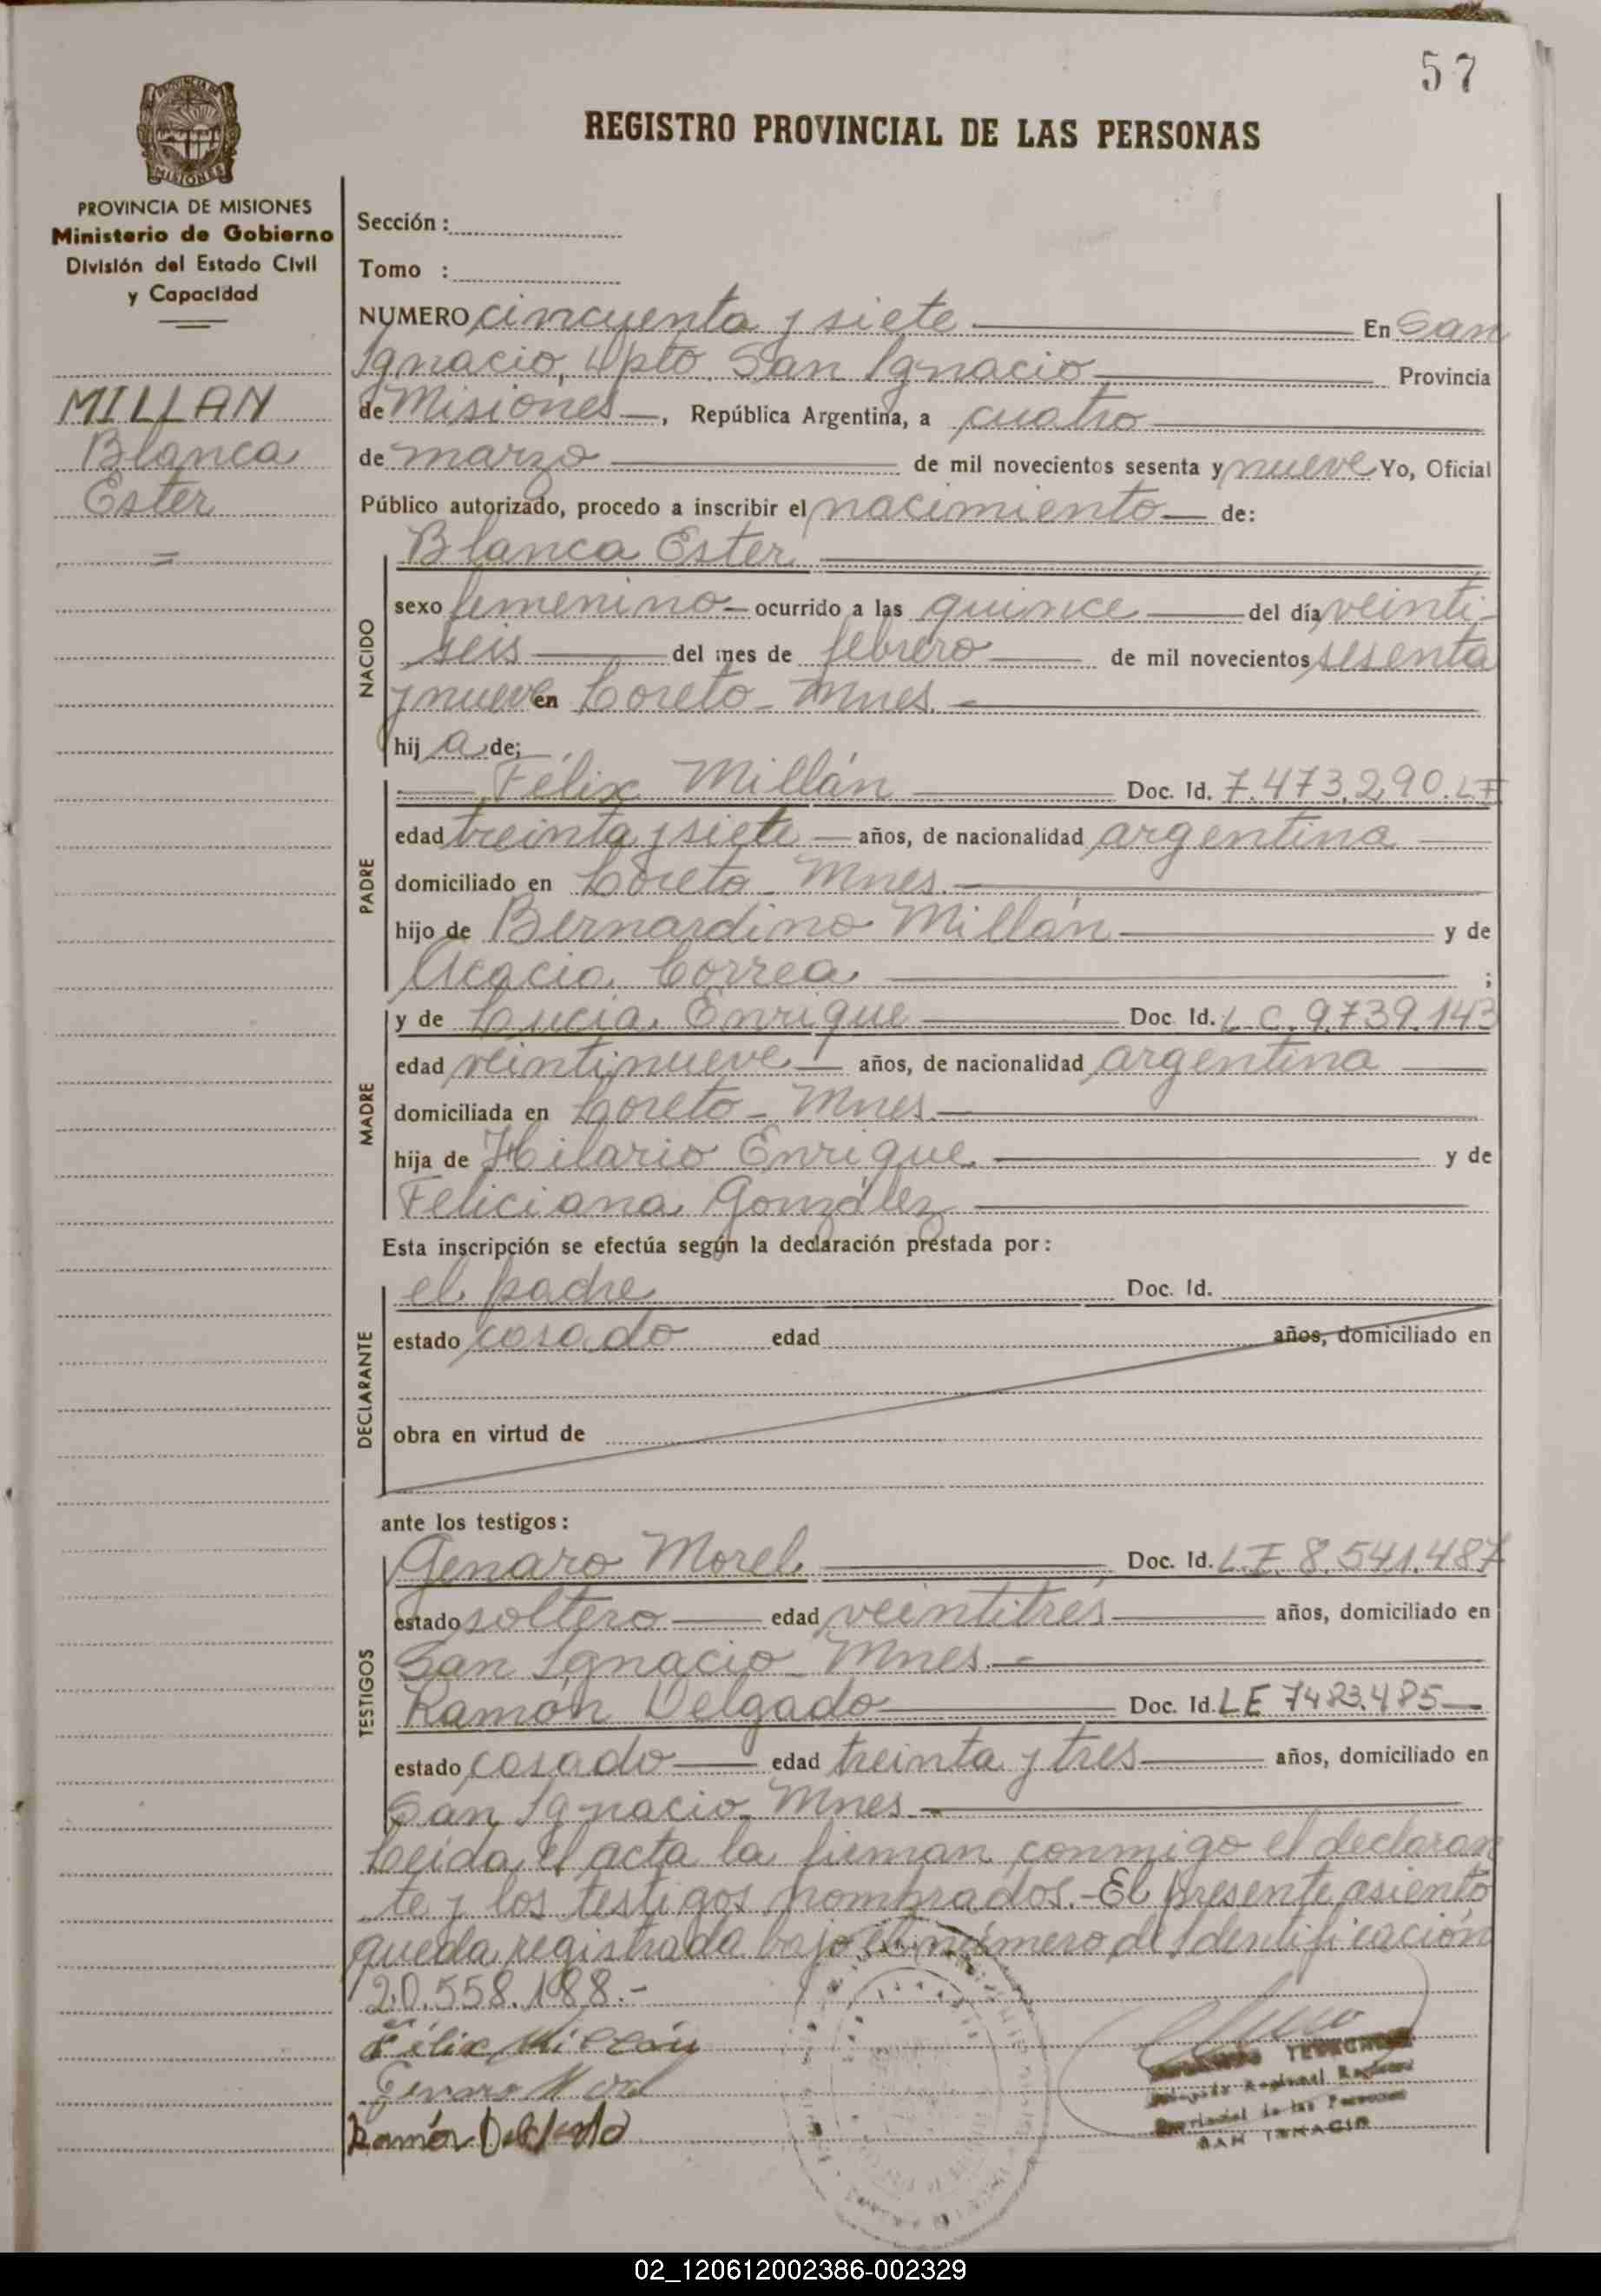 57
REGISTRO PROVINCIAL DE LAS PERSONAS
PROVINCIA DE MISIONES
Ministerio de Gobierno
División del Estado Civil
y Capacidad
MILLAN
Blanca
Ester
=
Sección :
Tomo :
NUMERO cincuenta y siete En San
Ignacio, Dpto. San Ignacio Provincia
de Misiones, República Argentina, a cuatro
de marzo de mil novecientos sesenta y nueve Yo, Oficial
Público autorizado, procedo a inscribir el nacimiento de:
Blanca Ester
NACIDO
sexo femenino ocurrido a las quince del día veinti-
seis del mes de febrero de mil novecientos sesenta
y nueve en Loreto - Mnes.
hij a de;
PADRE
Félix Millán Doc. Id. 7.473.290. LE
edad treinta y siete años, de nacionalidad argentina
domiciliado en Loreto - Mnes.
hijo de Bernardino Millán y de
Acacia Correa ;
MADRE
y de Lucia Enrique Doc. Id. L C. 9.739.143
edad veintinueve años, de nacionalidad argentina
domiciliada en Loreto - Mnes.
hija de Hilario Enrique y de
Feliciana González
Esta inscripción se efectúa según la declaración prestada por:
DECLARANTE
el padre Doc. Id.
estado casado edad años, domiciliado en
obra en virtud de
ante los testigos:
TESTIGOS
Genaro Morel Doc. Id. L.E. 8.541.487
estado soltero edad veintitrés años, domiciliado en
San Ignacio - Mnes.
Ramón Delgado Doc. Id. LE 7483.485
estado casado edad treinta y tres años, domiciliado en
San Ignacio - Mnes.
Leída el acta la firman conmigo el declaran
te y los testigos nombrados.- El presente asiento
queda registrada bajo el número de Identificación
20.558.188.-
Félix Millán
Genaro Morel
Ramón Delgado
Delegado Regional Registro
Provincial de las Personas
SAN IGNACIO
02_120612002386-002329